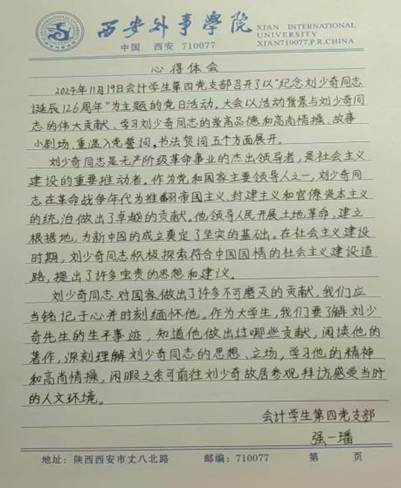 西安外事学院
XIAN INTERNATIONAL
UNIVERSITY
中国 西安 710077
XIAN710077,P.R.CHINA
心得体会
2024年11月19日会计学生第四党支部召开了以"纪念刘少奇同志
诞辰126周年"为主题的党日活动。大会以活动背景与刘少奇同
志的伟大贡献、学习刘少奇同志的崇高品德和高尚情操、故事
小剧场、重温入党誓词、书法贺词五个方面展开。
刘少奇同志是无产阶级革命事业的杰出领导者,是社会主义
建设的重要推动者。作为党和国家主要领导人之一,刘少奇同
志在革命战争年代为推翻帝国主义、封建主义和官僚资本主义
的统治做出了卓越的贡献。他领导人民开展土地革命,建立
根据地,为新中国的成立奠定了坚实的基础。在社会主义建设
时期,刘少奇同志积极探索符合中国国情的社会主义建设道
路,提出了许多宝贵的思想和建议。
刘少奇同志对国家做出了许多不可磨灭的贡献,我们应
当铭记于心并时刻缅怀他。作为大学生,我们要了解刘少
奇先生的生平事迹,知道他做出过哪些贡献,阅读他的
著作,深刻理解刘少奇同志的思想、立场,学习他的精神
和高尚情操,闲暇之余可前往刘少奇故居参观拜访感受当时
的人文环境。
会计学生第四党支部
强一璠
地址:陕西西安市丈八北路 邮编:710077 第 页